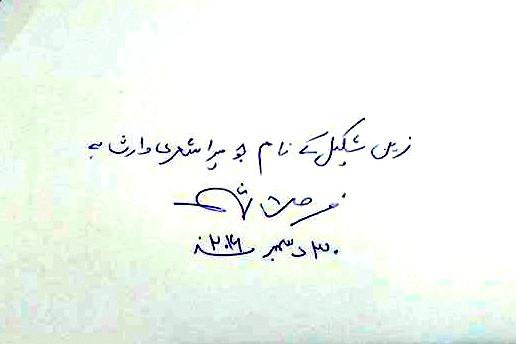 زین شکیل کے نام جو میرا شعری وارث ہے
فرحت شاہ
۳۰ دسمبر ۲۰۱۴ء